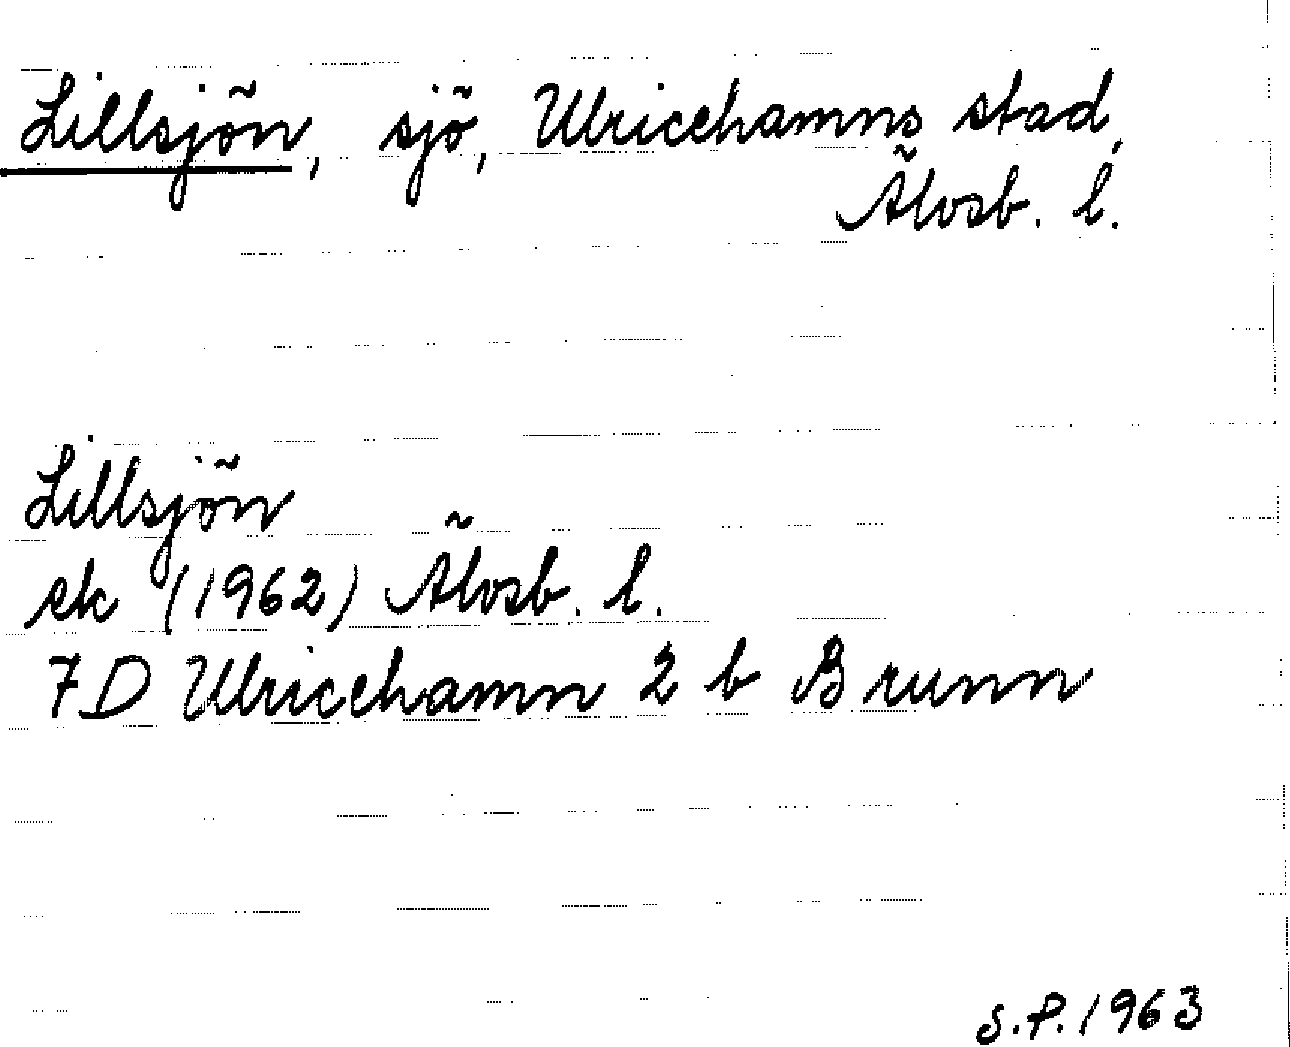 Lillsjön, sjö, Ulricehamns stad,
Älvsb. l.
Lillsjön
ek (1962) Älvsb. l.
7D Ulricehamn 2 b Brunn
S.P. 1963